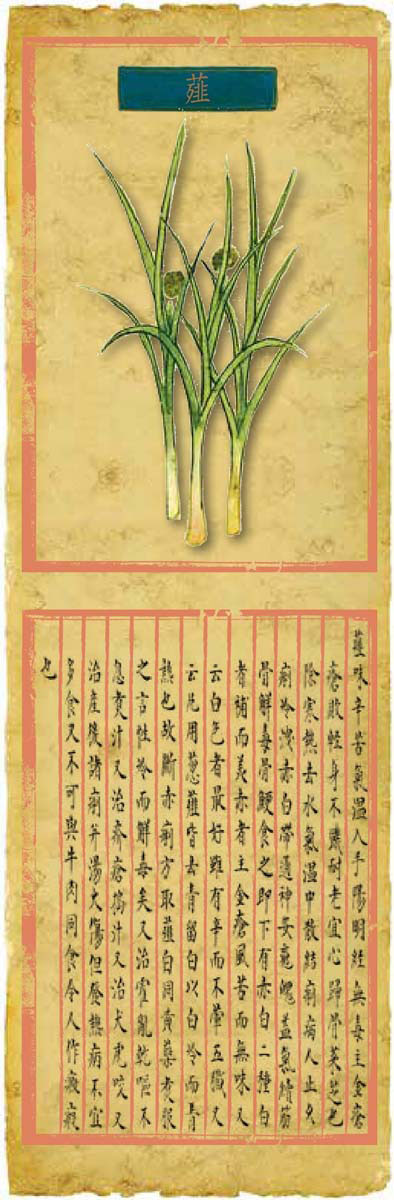 薤
薤味辛苦氣溫入手陽明經無毒主金瘡
瘡敗輕身不飢耐老宜心歸骨菜芝也
除寒熱去水氣溫中散結痢病人止久
痢冷洩赤白帶通神安魂魄益氣續筋
骨解毒骨鯁食之即下有赤白二種白
者補而美赤者主金瘡風苦而無味又
云白色者最好雖有辛而不葷五臟又
云凡用蔥薤皆去青留白以白冷而青
熱也故斷赤痢方取薤白同黃蘗煮服
之言性冷而解毒矣又治霍亂乾嘔不
息煮汁又治疥瘡搗汁又治犬虎咬又
治產後諸痢并湯火傷但發熱病不宜
多食又不可與牛肉同食令人作癥瘕
也